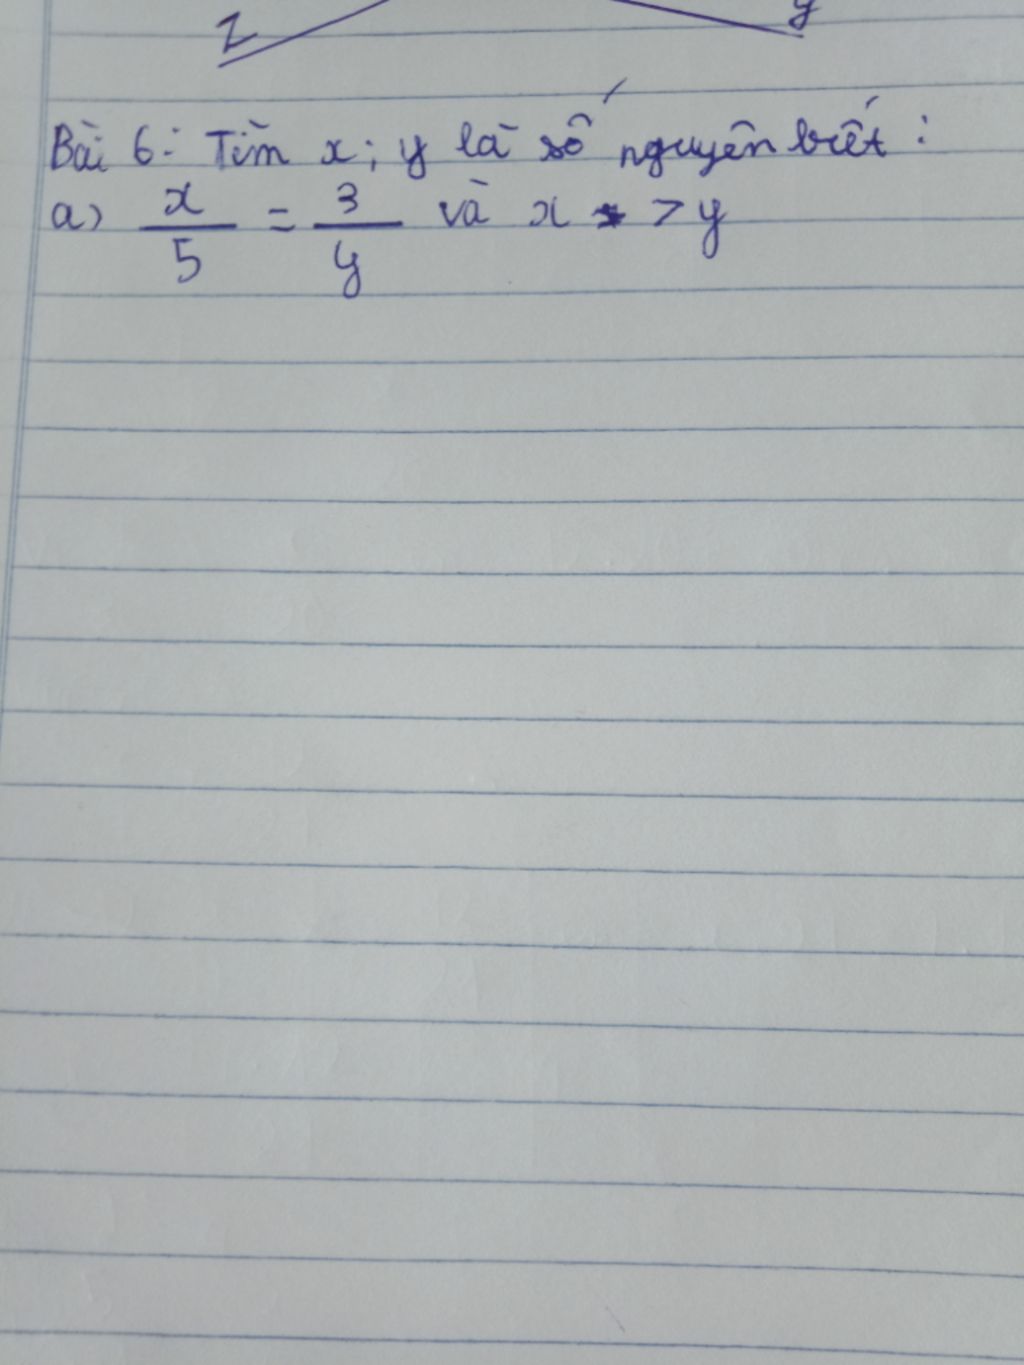 z y
Bài 6: Tìm x; y là số nguyên biết:
a) x/5 = 3/y và x > y